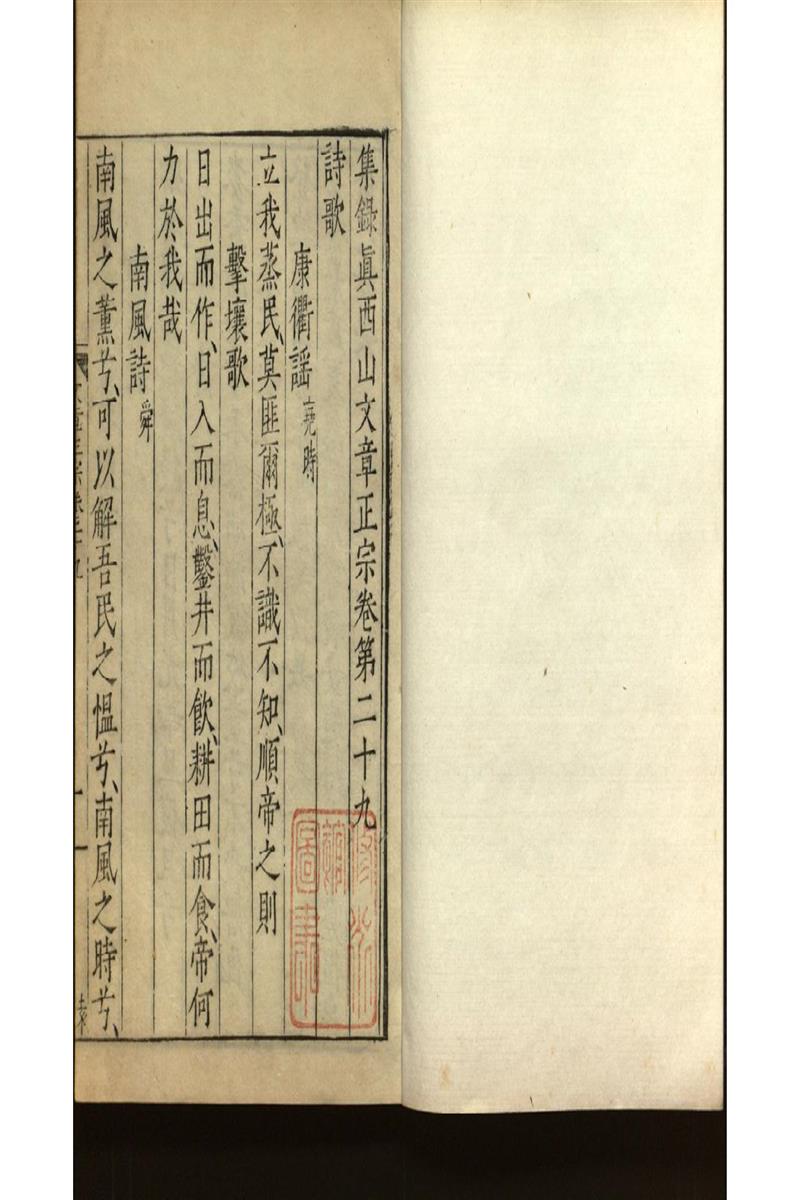 集錄眞西山文章正宗卷第二十九
詩歌
康衢謡 堯時
立我蒸民、莫匪爾極、不識不知、順帝之則
擊壤歌
日出而作、日入而息、鑿井而飲、耕田而食、帝何
力於我哉
南風詩 舜
南風之薰兮、可以解吾民之愠兮、南風之時兮、